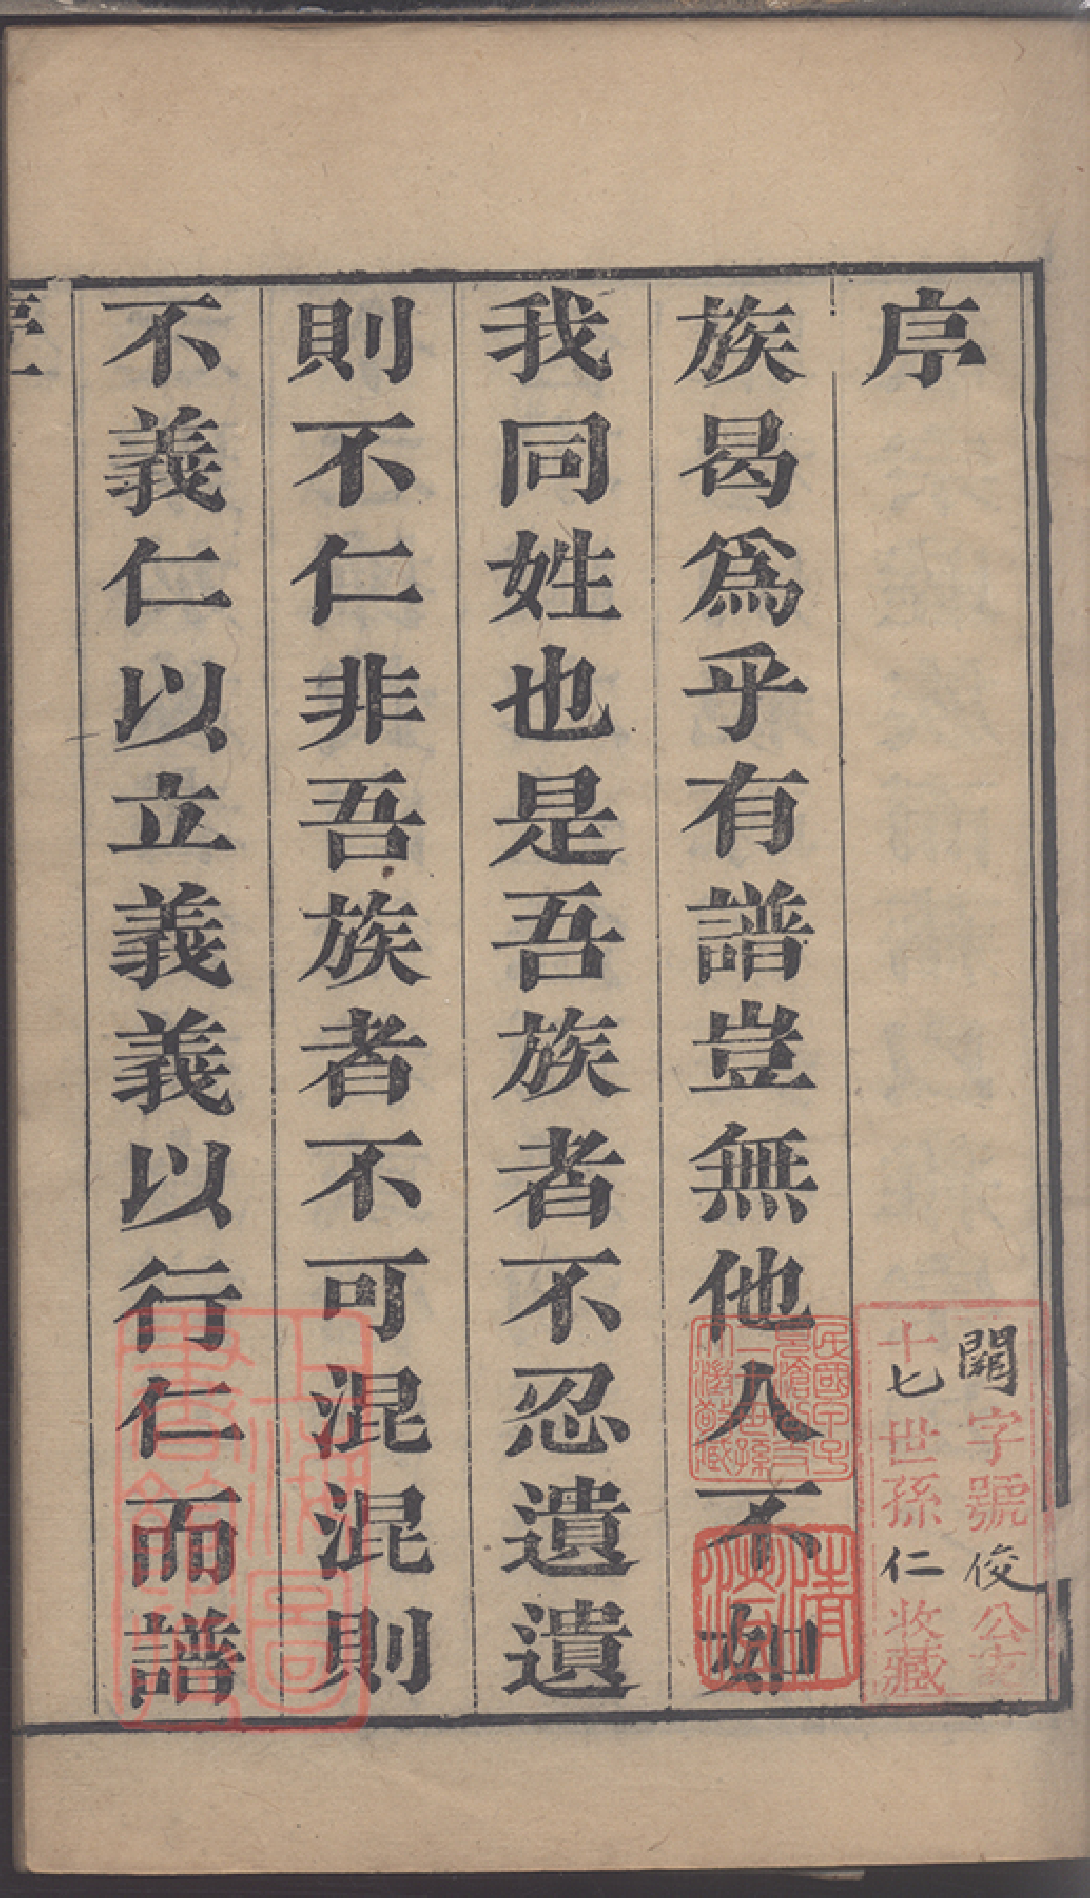 序
闕字號俊公支
十七世孫仁收藏
族曷爲乎有譜豈無他人不如
我同姓也是吾族者不忍遺遺
則不仁非吾族者不可混混則
不義仁以立義義以行仁而譜
上海圖書館藏